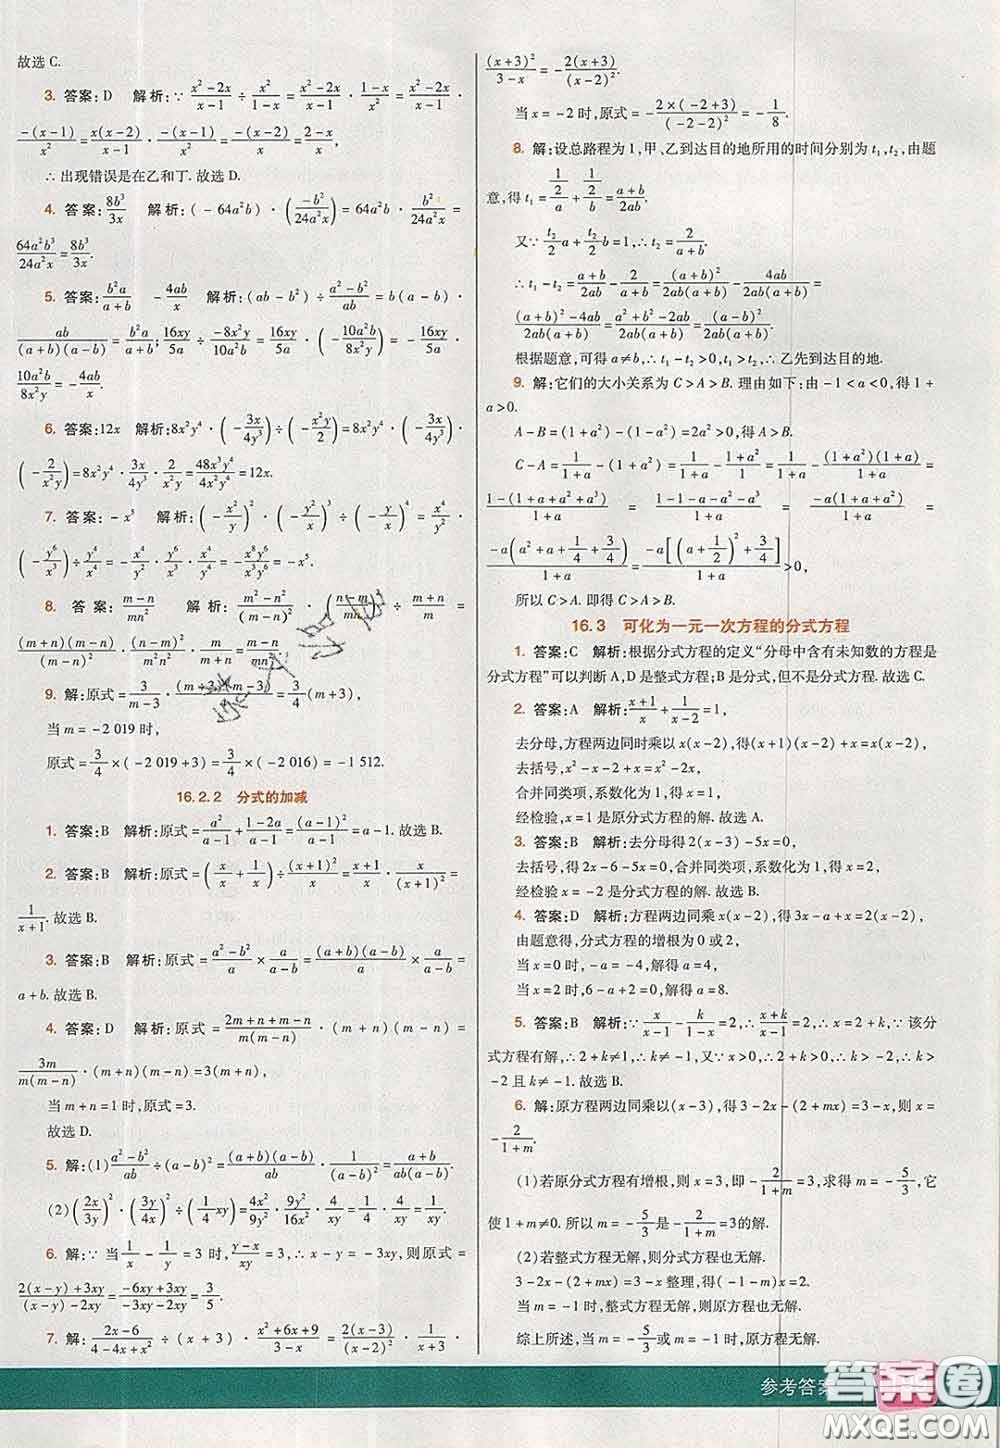 故选 C.
3. 答案:D 解析:∵ (x²-2x)/(x-1) ÷ x²/(1-x) = (x²-2x)/(x-1) · (1-x)/x² = (x²-2x)/(x-1) ·
-(x-1)/x² = x(x-2)/(x-1) · -(x-1)/x² = -(x-2)/x = (2-x)/x
∴ 出现错误是在乙和丁. 故选 D.
4. 答案: 8b³/3x 解析:(-64a²b) · (-b²/24a²x) = 64a²b · b²/24a²x =
64a²b³/24a²x = 8b³/3x.
5. 答案: b²a/(a+b) -4ab/x 解析:(ab-b²) ÷ (a²-b²)/ab = b(a-b) ·
ab/((a+b)(a-b)) = b²a/(a+b); 16xy/5a ÷ (-8x²y/10a²b) = 16xy/5a · (-10a²b/8x²y) = -16xy/5a ·
10a²b/8x²y = -4ab/x
6. 答案:12x 解析:8x²y⁴ · (-3x/4y³) ÷ (-x²y/2) = 8x²y⁴ · (-3x/4y³) ·
(-2/x²y) = 8x²y⁴ · 3x/4y³ · 2/x²y = 48x³y⁴/4x²y⁴ = 12x.
7. 答案:-x⁵ 解析:(-x²/y)² · (-y²/x)³ ÷ (-y/x)⁴ = x⁴/y² ·
(-y⁶/x³) ÷ y⁴/x⁴ = -x⁴/y² · y⁶/x³ · x⁴/y⁴ = -x⁵.
8. 答案: (m-n)/mn² 解析: (m²-n²)/(m-n)² · ((n-m)/mn)² ÷ (m+n)/m =
(m+n)(m-n)/(m-n)² · (m-n)²/m²n² · m/(m+n) = (m-n)/mn²
9. 解:原式 = 3/(m-3) · (m+3)(m-3)/4 = 3/4(m+3),
当 m=-2 019 时,
原式 = 3/4×(-2 019+3) = 3/4×(-2 016) = -1 512.
16.2.2 分式的加减
1. 答案:B 解析:原式 = a²/(a-1) + (1-2a)/(a-1) = (a-1)²/(a-1) = a-1. 故选 B.
2. 答案:B 解析:原式 = (x/x + 1/x) ÷ (x+1)²/x = (x+1)/x · x/(x+1)² =
1/(x+1). 故选 B.
3. 答案:B 解析:原式 = (a²-b²)/a × a/(a-b) = (a+b)(a-b)/a × a/(a-b) =
a+b. 故选 B.
4. 答案:D 解析:原式 = (2m+n+m-n)/(m(m-n)) · (m+n)(m-n) =
3m/(m(m-n)) · (m+n)(m-n) = 3(m+n),
当 m+n=1 时,原式=3.
故选 D.
5. 解:(1) (a²-b²)/ab ÷ (a-b)² = (a+b)(a-b)/ab · 1/(a-b)² = (a+b)/(ab(a-b)).
(2) (2x/3y)² · (3y/4x)² ÷ (1/4 xy) = 4x²/9y² · 9y²/16x² · 4/xy = 1/4 · 4/xy = 1/xy.
6. 解:∵ 当 1/x - 1/y = 3 时, (y-x)/xy = 3, ∴ x-y = -3xy,则原式 =
(2(x-y)+3xy)/((x-y)-2xy) = (-6xy+3xy)/(-3xy-2xy) = 3/5.
7. 解: (2x-6)/(4-4x+x²) ÷ (x+3) · (x²+6x+9)/(3-x) = 2(x-3)/(x-2)² · 1/(x+3) ·
(x+3)²/(3-x) = -2(x+3)/(x-2)².
当 x=-2 时,原式 = -2×(-2+3)/(-2-2)² = -1/8.
8. 解:设总路程为 1,甲、乙到达目的地所用的时间分别为 t₁,t₂,由题
意,得 t₁ = (1/2)/a + (1/2)/b = (a+b)/2ab.
又∵ t₂/2 a + t₂/2 b = 1,∴ t₂ = 2/(a+b).
∴ t₁-t₂ = (a+b)/2ab - 2/(a+b) = (a+b)²/2ab(a+b) - 4ab/2ab(a+b) =
((a+b)²-4ab)/2ab(a+b) = (a²+b²-2ab)/2ab(a+b) = (a-b)²/2ab(a+b).
根据题意,可得 a≠b,∴ t₁-t₂>0,t₁>t₂,∴ 乙先到达目的地.
9. 解:它们的大小关系为 C>A>B. 理由如下:由 -1<a<0,得 1+
a>0.
A-B=(1+a²)-(1-a²)=2a²>0,得 A>B.
C-A = 1/(1+a) - (1+a²) = 1/(1+a) - (1+a²)/1 = 1/(1+a) - (1+a²)(1+a)/(1+a) =
(1-(1+a+a²+a³))/(1+a) = (1-1-a-a²-a³)/(1+a) = -a(1+a+a²)/(1+a) =
-a(a²+a+1/4+3/4)/(1+a) = -a[(a+1/2)²+3/4]/(1+a) > 0,
所以 C>A. 即得 C>A>B.
16.3 可化为一元一次方程的分式方程
1. 答案:C 解析:根据分式方程的定义“分母中含有未知数的方程是
分式方程”可以判断 A,D 是整式方程;B 是分式,但不是方程. 故选 C.
2. 答案:A 解析: (x+1)/x + 1/(x-2) = 1,
去分母,方程两边同时乘以 x(x-2),得(x+1)(x-2)+x=x(x-2),
去括号,得 x²-2x+x-2+x=x²-2x,
合并同类项,系数化为 1,得 x=1,
经检验,x=1 是原分式方程的解. 故选 A.
3. 答案:B 解析:去分母得 2(x-3)-5x=0,
去括号,得 2x-6-5x=0,合并同类项,系数化为 1,得 x=-2,
经检验 x=-2 是分式方程的解. 故选 B.
4. 答案:D 解析:方程两边同乘 x(x-2),得 3x-a+x=2(x-2),
由题意得,分式方程的增根为 0 或 2,
当 x=0 时,-a=-4,解得 a=4,
当 x=2 时,6-a+2=0,解得 a=8.
5. 答案:B 解析:∵ x/(x-1) - k/(1-x) = 2,∴ (x+k)/(x-1) = 2,∴ x=2+k,∵ 该分
式方程有解,∴ 2+k≠1,∴ k≠-1,又∵ x>0,∴ 2+k>0,∴ k>-2,∴ k>
-2 且 k≠-1. 故选 B.
6. 解:原方程两边同乘以(x-3),得 3-2x-(2+mx)=3-x,则 x=
-2/(1+m).
(1)若原分式方程有增根,则 x=3,即 -2/(1+m) = 3,解得 m = -5/3,它
使 1+m≠0. 所以 m = -5/3 是 -2/(1+m) = 3的解.
(2)若整式方程无解,则分式方程也无解.
3-2x-(2+mx)=3-x 整理,得(1+m)x=-2.
当 m=-1 时,整式方程无解,则原方程也无解.
综上所述,当 m=-5/3 或 m=-1 时,原方程无解.
参考答案
答案圈
MXQE.COM